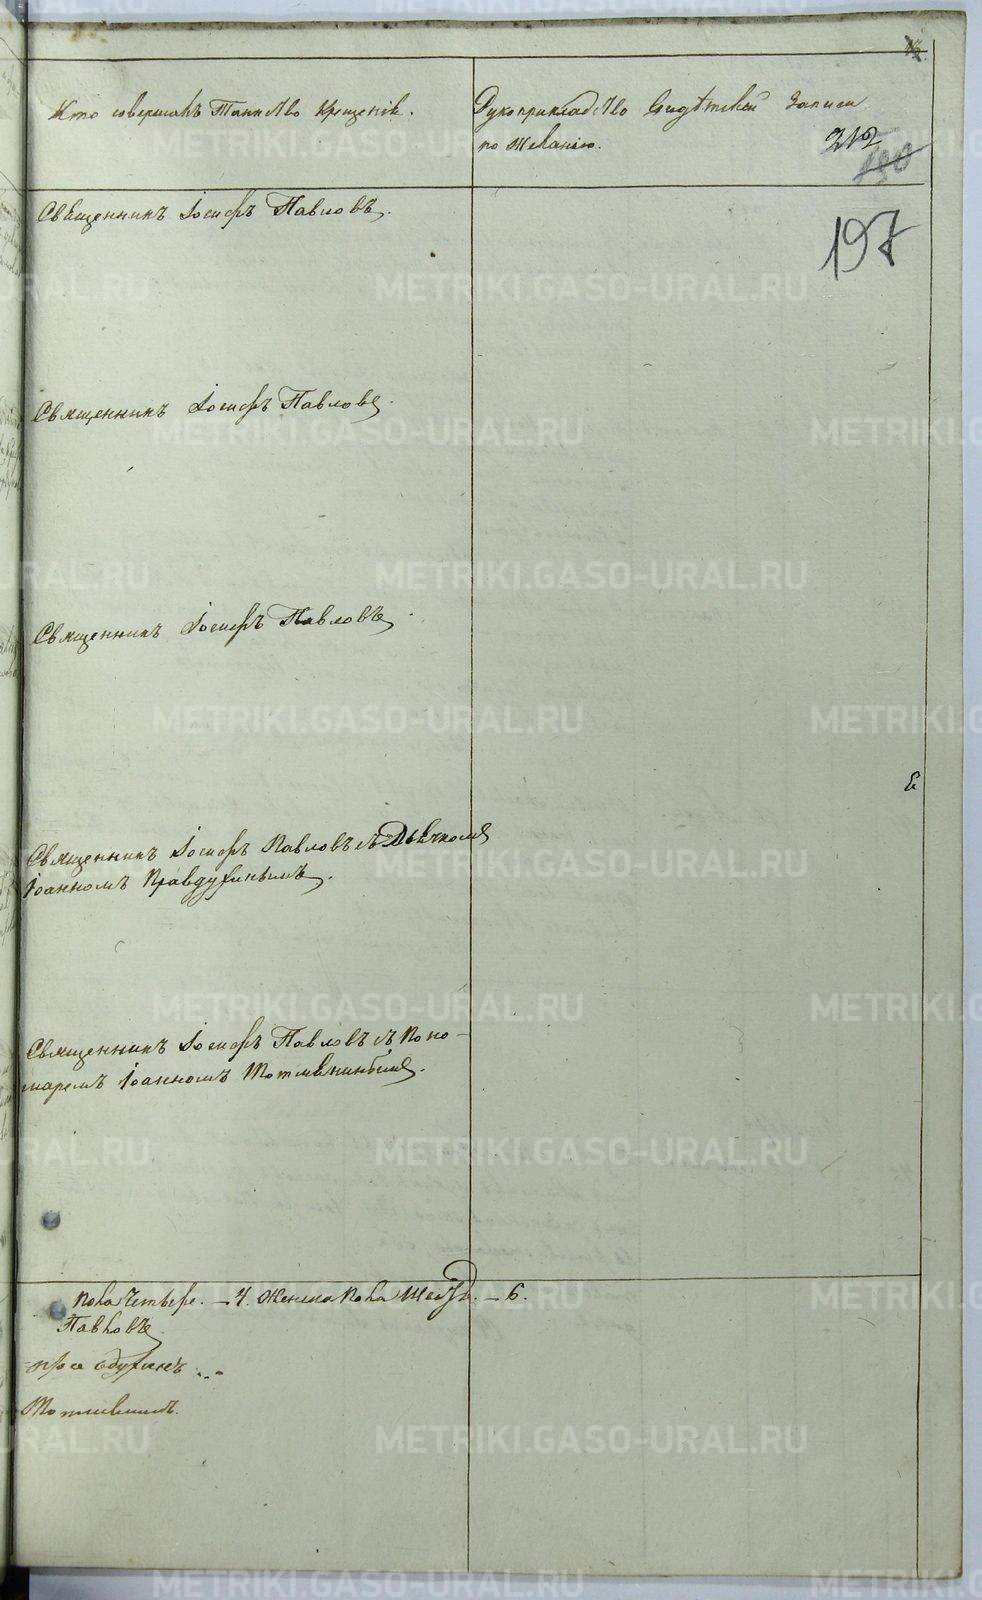 Кто совершалъ Таинство крещенія.
Рукоприкладство Свидѣтелей записи
по желанію.
212
190
197
Священникъ Іосифъ Павловъ.
Священникъ Іосифъ Павловъ.
Священникъ Іосифъ Павловъ.
Священникъ Іосифъ Павловъ съ Дьячкомъ
Іоанномъ Правдухинымъ.
Священникъ Іосифъ Павловъ съ Поно-
маремъ Іоанномъ
пола Четыре. – 4. Женска пола Шесть. – 6.
Павловъ
METRIKI.GASO-URAL.RU